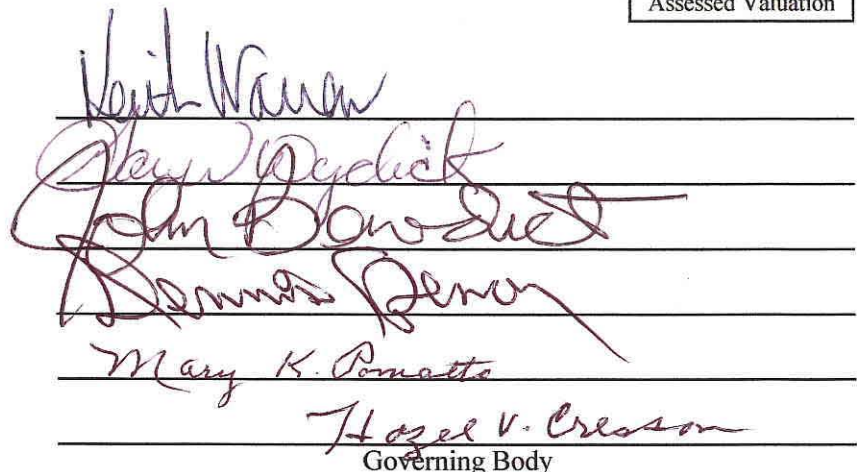 Assessed Valuation
Keith Warren
Gary W Wydick
John Benedict
Dennis
Mary K. Pomatto
Hazel V. Creason
Governing Body